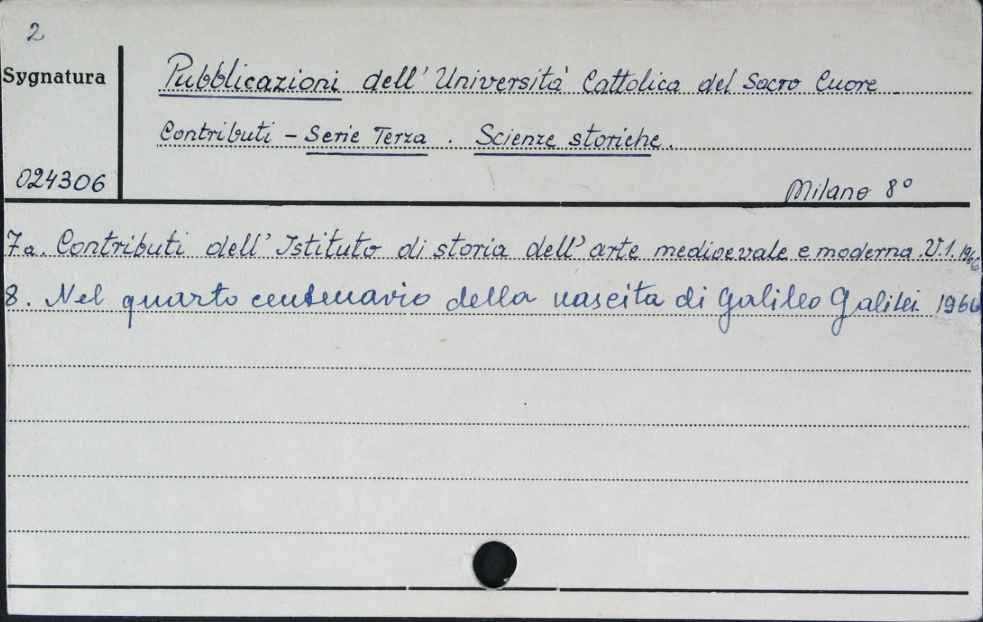 2
Sygnatura
Pubblicazioni dell' Università Cattolica del Sacro Cuore
Contributi - Serie Terza. Scienze storiche.
024306
Milano 8°
7a. Contributi dell' Istituto di storia dell' arte medioevale e moderna. V.1. 1966
8. Nel quarto centenario della nascita di Galileo Galilei 1966